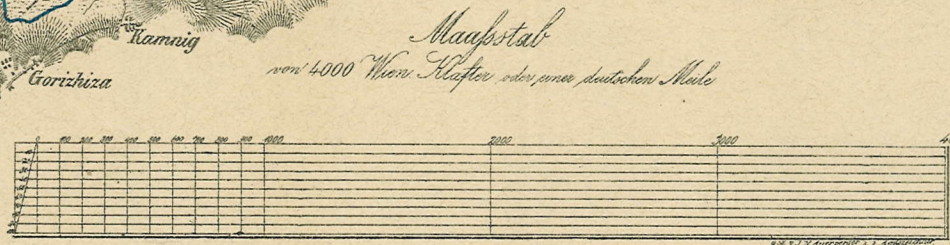 Kamnig
Gorizhiza
Maaſsstab
von 4000 Wien. Klafter oder einer deutschen Meile
100 200 300 400 500 600 700 800 900 1000 2000 3000 4